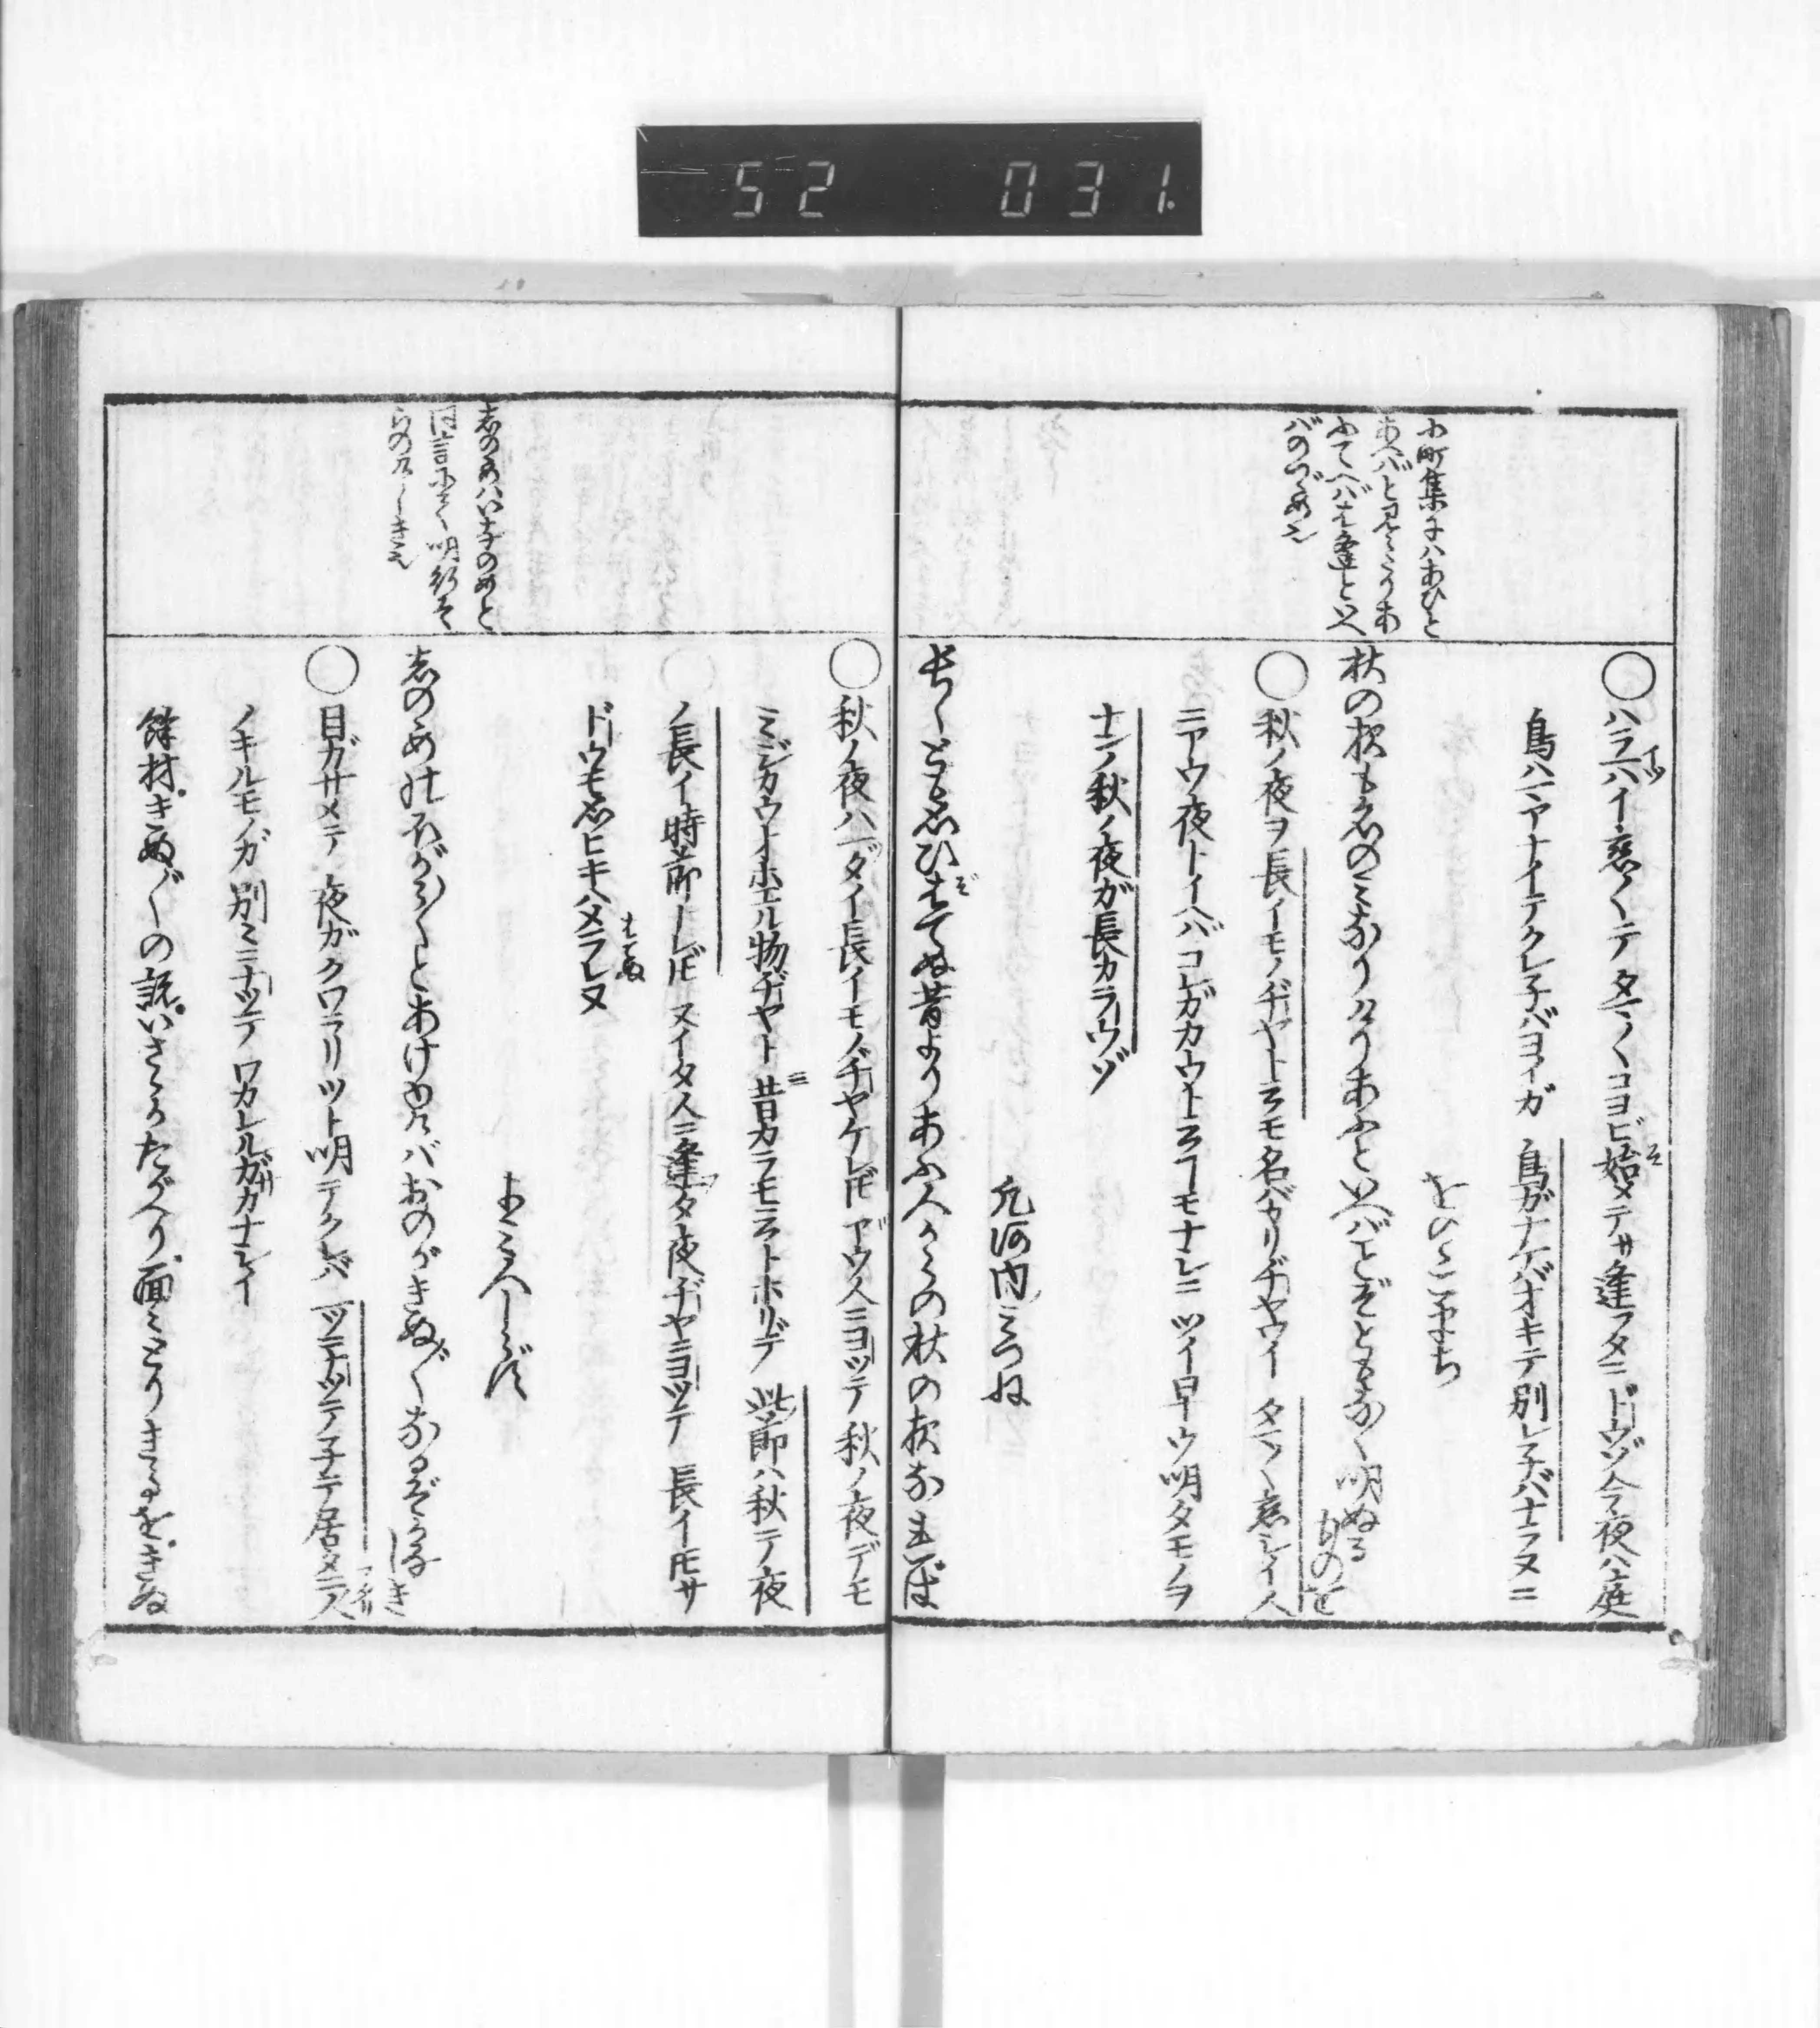 52 031.
小町集にハあひと
あへバと見えたりあ
ふてへバは逢といへ
バのつゞめ也
○ハライツハイ恋〳〵テタマ〳〵コヨヒ始メテサ逢フタニ ドウゾ今夜ハ庭
鳥ハナイテクレ子バヨイガ 鳥ガナケバオキテ別レ子バナラヌニ
をのゝこまち
秋の夜も名のミなりけりあふといへばことぞともなく明ぬるものを
○秋ノ夜ヲ長イモノヂヤト云モ名バカリヂヤワイ タマ〳〵恋シイ人
ニアウ夜トイヘバ コレガカウト云ヿモナシニ ツイ早ウ明タモノヲ
ナンノ秋ノ夜ガ長カラウゾ
凡河内ミつね
長しとも思ひぞはてぬ昔よりあふ人からの秋の夜なれば
しのゝめハいなのめと
同言にて明行そ
らのけしき也
○秋ノ夜ハ一タイ長イモノヂヤケレ𪜈 アウ人ニヨツテ 秋ノ夜デモ
ミジカウオホエル物ヂヤト 昔カラモ云トホリデ 此節ハ秋デ夜
ノ長イ時節ナレ𪜈 スイタ人ニ逢フタ夜ヂヤニヨツテ 長イ𪜈サ
ドウモ思ヒキハメラレヌ
よミ人しらず
しのゝめのほがら〳〵とあけゆけバおのがきぬ〴〵なるぞかなしき
○目ガサメテ 夜ガクワラリツト明テクレバ 一ツニナツテ子テ居タ二人
ノキルモノガ 別々ニナツテ ワカレルガサカナシイ
餘材きぬ〴〵の説いさゝかたがへり 面々とりきるをきぬ